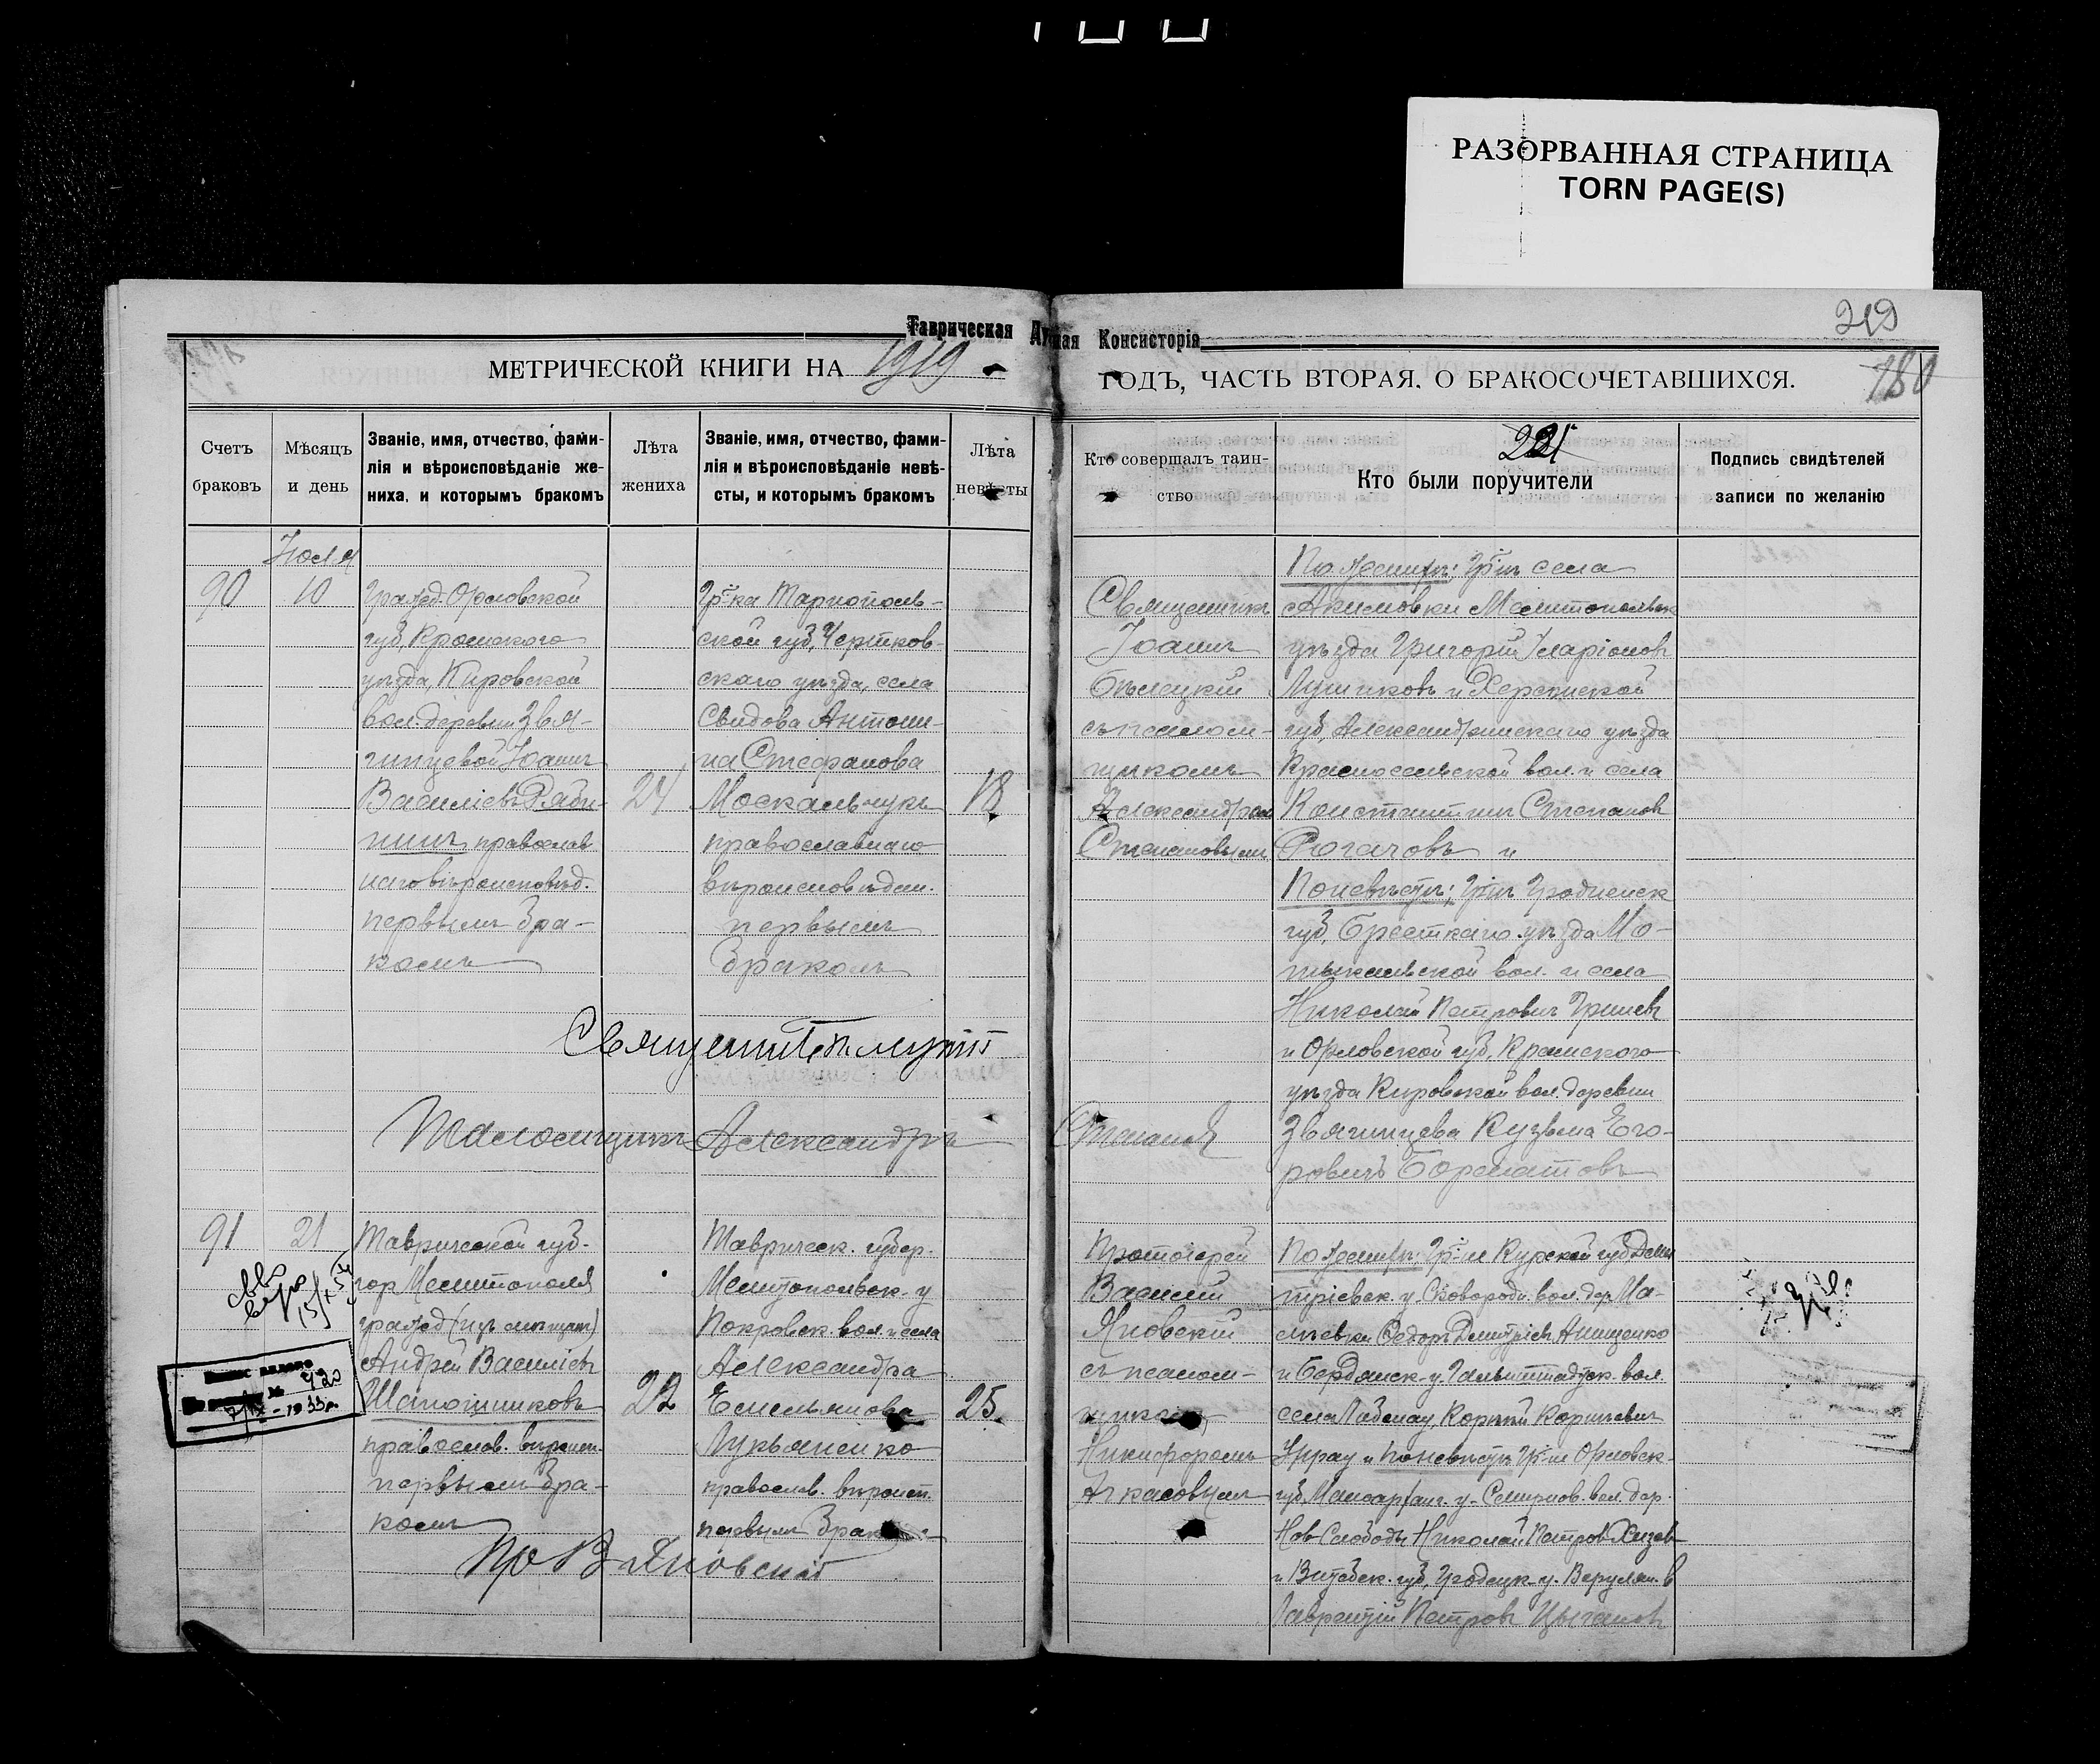 РАЗОРВАННАЯ СТРАНИЦА
TORN PAGE(S)
219
Таврическая Консисторія
МЕТРИЧЕСКОЙ КНИГИ НА 1919
ГОДЪ, ЧАСТЬ ВТОРАЯ, О БРАКОСОЧЕТАВШИХСЯ.
180
Счетъ браковъ
Мѣсяцъ и день
Званіе, имя, отчество, фами-
лія и вѣроисповѣданіе же-
ниха, и которымъ бракомъ
Лѣта жениха
Званіе, имя, отчество, фами-
лія и вѣроисповѣданіе невѣ-
сты, и которымъ бракомъ
Лѣта невѣсты
Кто совершалъ таин-
ство
221
Кто были поручители
Подпись свидѣтелей
записи по желанію
90
10
Гражд. Орловской
губ, Кромского
уѣзда, Кировской
вол. деревни Звя-
гинцевой Іоаннъ
Васильевъ Ряби-
нинъ православ
наго вѣроисповѣд.
первымъ бра-
комъ
24
Гр-ка Тарнополь-
ской губ, Чертков-
скаго уѣзда, села
Свидова Антони-
на Стефанова
Москальчукъ
православнаго
вѣроисповѣдан.
первымъ
бракомъ
18
Священникъ
Іоаннъ
Бѣлецкій
съ псалом-
щикомъ
Александром
Степановымъ
По женихѣ: Гр-нъ села
Акимовки Мелитопольск
уѣзда Григорій Иларіоновъ
Лушиковъ и Херсонской
губ, Александрійскаго уѣзда
Красносельской вол. и села
Константинъ Степановъ
Рогачовъ и
По невѣстѣ: Гр-нъ Гродненск
губ, Брестскаго уѣзда Мо-
тыкальской вол. и села
Николай Петровичъ
и Орловской губ, Кромского
уѣзда Кировской вол. деревни
Звягинцева Кузьма Его-
ровичъ
Псаломщикъ Александръ Степановъ
91
21
Таврической губ.
гор Мелитополя
гражд (изъ мѣщан)
Андрей Васильевъ
Шапошниковъ
православ. вѣроисп.
первымъ бра-
комъ
22
Таврическ. губер.
Мелитопольск. у
Покровск. вол. и села
Александра
Емельянова
Лукьяненко
православ. вѣроисп.
первымъ
25
Протоіерей
Василій
Яновскій
съ псалом-
Никифоромъ
По женихѣ: Гр-не Курской губ Дми
тріевск. у.
Федоръ Дмитріевъ Анищенко
и Бердянск. у. Гальбштадтск. вол.
села Корній Корніевич
и по невѣстѣ Гр-не Орловск.
губ, Малоархангел. у.
Нов Слободы Николай Петров
и Витебск. губ, Городецк. у.
Лаврентій Петровъ Цыгановъ
Пр В Яновскій